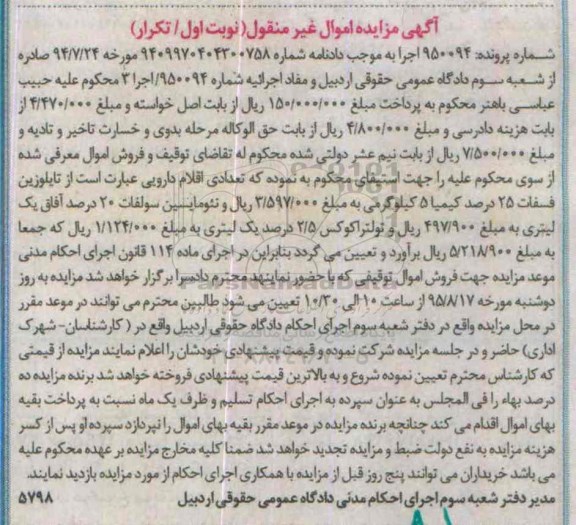 آگهی مزایده اموال غیر منقول(نوبت اول / تکرار)
شـماره پرونده: ۹۵۰۰۹۴ اجرا به موجب دادنامه شماره ۹۴۰۹۹۷۰۴۰۴۳۰۰۷۵۸ مورخه ۹۴/۷/۲۴ صادره
از شـعبه سـوم دادگاه عمومی حقوقی اردبیل و مفاد اجرائیه شماره ۹۵۰۰۹۴/ اجرا ۳ محکوم علیه حبیب
عباسـی باهنر محکوم به پرداخت مبلغ ۱۵۰/۰۰۰/۰۰۰ ریال از بابت اصل خواسته و مبلغ ۴/۴۷۰/۰۰۰ از
بابت هزینه دادرسی و مبلغ ۴/۸۰۰/۰۰۰ ریال از بابت حق الوکاله مرحله بدوی و خسارت تاخیر و تادیه و
مبلغ ۷/۵۰۰/۰۰۰ ریال از بابت نیم عشر دولتی شده محکوم له تقاضای توقیف و فروش اموال معرفی شده
از سوی محکوم علیه را جهت استیفای محکوم به نموده که تعدادی اقلام دارویی عبارت است از تایلوزین
فسفات ۲۵ درصد کیمیا ۵ کیلوگرمی به مبلغ ۳/۵۹۷/۰۰۰ ریال و نئومایسین سولفات ۲۰ درصد آفاق یک
لیتری به مبلغ ۴۹۷/۹۰۰ ریال و تولتراکوکس ۲/۵ درصد یک لیتری به مبلغ ۱/۱۲۴/۰۰۰ ریال که جمعا
به مبلغ ۵/۲۱۸/۹۰۰ ریال برآورد و تعیین می گردد بنابراین در اجرای ماده ۱۱۴ قانون اجرای احکام مدنی
موعد مزایده جهت فروش اموال توقیفی که با حضور نماینده محترم دادسرا برگزار خواهد شد مزایده به روز
دوشنبه مورخه ۹۵/۸/۱۷ از ساعت ۱۰ الی ۱۰/۳۰ تعیین می شود طالبین محترم می توانند در موعد مقرر
در محل مزایده واقع در دفتر شعبه سوم اجرای احکام دادگاه حقوقی اردبیل واقع در ( کارشناسان- شهرک
اداری) حاضر و در جلسه مزایده شرکت نموده و قیمت پیشنهادی خودشان را اعلام نمایند مزایده از قیمتی
که کارشناس محترم تعیین نموده شروع و به بالاترین قیمت پیشنهادی فروخته خواهد شد برنده مزایده ده
درصد بهاء را فی المجلس به عنوان سپرده به اجرای احکام تسلیم و ظرف یک ماه نسبت به پرداخت بقیه
بهای اموال اقدام می کند چنانچه برنده مزایده در موعد مقرر بقیه بهای اموال را نپردازد سپرده او پس از کسر
هزینه مزایده به نفع دولت ضبط و مزایده تجدید خواهد شد ضمنا کلیه مخارج مزایده بر عهده محکوم علیه
می باشد خریداران می توانند پنج روز قبل از مزایده با همکاری اجرای احکام از مورد مزایده بازدید نمایند.
مدیر دفتر شعبه سوم اجرای احکام مدنی دادگاه عمومی حقوقی اردبیل ۵۷۹۸